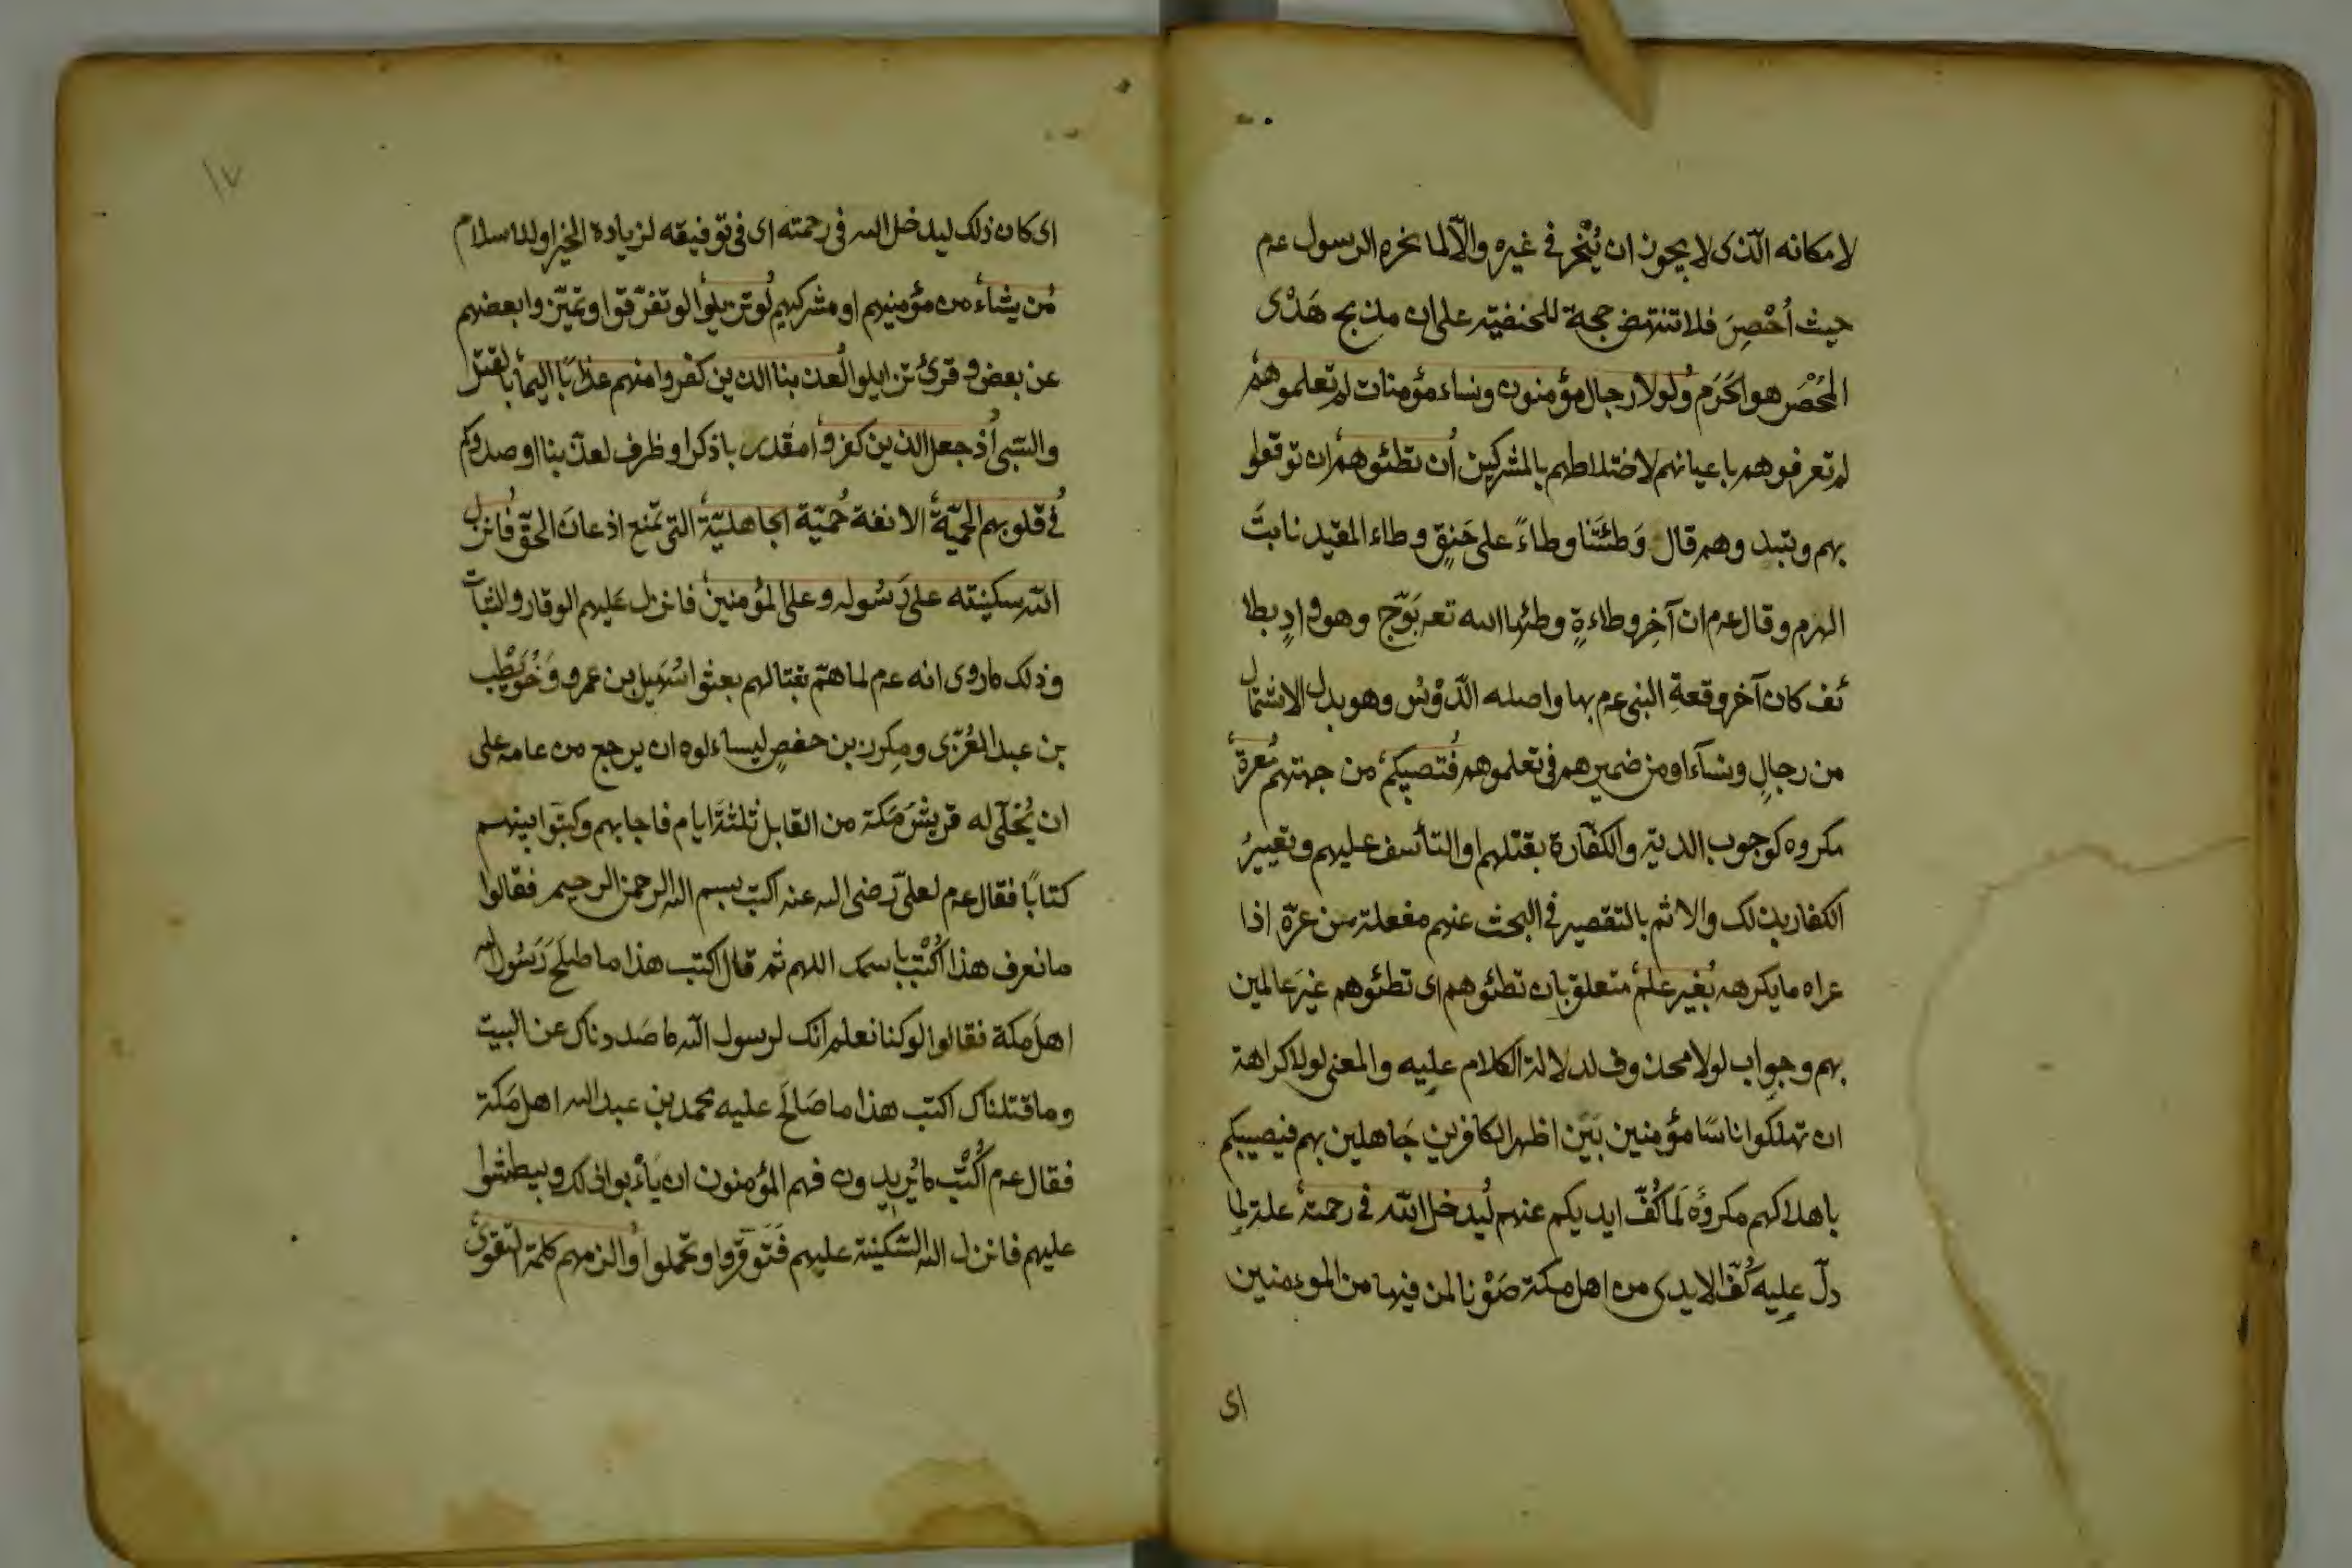 لا مكانه الّذى لا يجوز ان يُنْحر فى غيره والّا لما نحره الرسول عم
حيث اُحْصِرَ فلا تنتهض حجة للحنفيّة على ان مذبح هَدْى
المُحْصَر هو الحَرَم ولولا رجال مؤمنون ونساء مؤمنات لم تعلموهم
لم تعرفوهم باعيانهم لاختلاطهم بالمشركين أن تطئوهم ان توقعوا
بهم وتبيدوهم قال وَطئتَنا وطاءً على حَنِقٍ وطاء المقيد نابتَ
الهرم وقال عم ان آخِر وطاءةٍ وطئها الله تعـ بوَجّ وهو وادٍ بطا
ئف كان آخر وقعةِ النبى عم بها واصله الدَّوْسُ وهو بدل الاشتمال
من رجالٍ ونسآء او من ضميرهم فى تعلموهم فتصيبكم من جهتهم معرة
مكروه كوجوب الدية والكفّارة بقتلهم او التأسف عليهم وتعييرُ
الكفار بذلك والاثم بالتقصير فى البحث عنهم مفعلة من عرّه اذا
عراه ما يكرهه بغير علم متعلق بان تطئوهم اى تطئوهم غيرَ عالمين
بهم وجواب لولا محذوف لدلالة الكلام عليه والمعنى لولا كراهة
ان تهلكوا اناسًا مؤمنين بَيْن اظهر الكافرين جَاهلين بهم فيصيبكم
باهلاكهم مكروهٌ لَما كُفّ ايديكم عنهم ليدخل اللّه فى رحمته علة لِما
دلّ عليه كُفّ الايدى من اهل مكة صَوْنا لمن فيها من الموءمنين
اى
١٧
اى كان ذلك ليدخل الله فى رحمته اى فى توفيقه لزيادة الخير او للاسلام
من يشاء من مؤمنيهم او مشركيهم لو تزيلوا لو تفرّقوا وتميّزوا بعضهم
عن بعض وقرئ تزايلوا لعذبنا الذين كفروا منهم عذابًا اليمًا بالقتل
والسّبى اذ جعل الذين كفروا مقدر باذكر او ظرف لعذّبنا او صدوكم
فى قلوبهم الحميّة الانفة حميّة الجاهليّة التى تمنع اذعان الحقّ فانزل
اللّه سكينته على رَسُوله وعلى المؤمنين فانزل عليهم الوقار والثبات
وذلك ما روى انه عم لما همّ بقتالهم بعثوا سُهَيل بن عمرو وَحُوَيْطِب
بن عبد العُزّى ومِكرز بن حفصٍ ليساءلوه ان يرجع من عامه على
ان يُخلّى له قريشَ مَكة من القابل ثلثةَ ايام فاجابهم وكتبوا بينهم
كتابًا فقال عم لعلىّ رضى الله عنه اكتب بسم الله الرحمن الرحيم فقالوا
ما نعرف هذا اُكْتُبْ باسمك اللهم ثم قال اكتب هذا ما صالح رَسُول الله
اهلَ مكة فقالوا لو كنا نعلم انك لرسول الله ما صددناك عن البيت
وما قتلناك اكتب هذا ما صَالحَ عليه محمد بن عبد الله اهل مَكة
فقال عم اُكْتُب ما يُريدون فهم المؤمنون ان يَأْبوا ذلك ويبطشوا
عليهم فانزل الله السّكينة عليهم فَتَوقّروا وتحمّلوا والزمهم كلمة التقوى